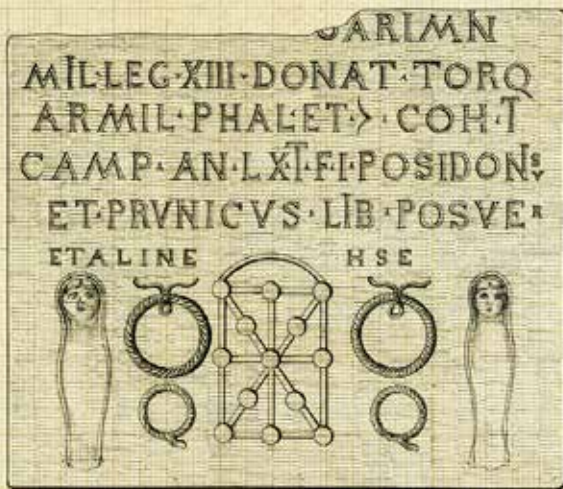 ARIMN
MIL·LEG·XIII·DONAT·TORQ
ARMIL·PHAL·ET·>·COH·I
CAMP·AN·LXI·F·I·POSIDONVS
ET·PRVNICVS·LIB·POSVER
ETALINE HSE